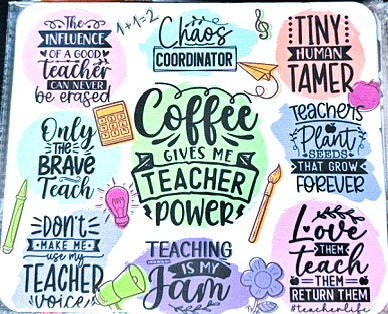 The
INFLUENCE
OF A GOOD
teacher
CAN NEVER
be erased
1+1=2
Chaos
COORDINATOR
TINY
HUMAN
TAMER
Only
THE
BRAVE
Teach
Coffee
GIVES ME
TEACHER
POWER
Teachers
Plant
SEEDS
THAT GROW
FOREVER
DON'T
MAKE ME
use my
TEACHER
voice
TEACHING
IS MY
Jam
Love
THEM
teach
THEM
RETURN THEM
#teacherlife